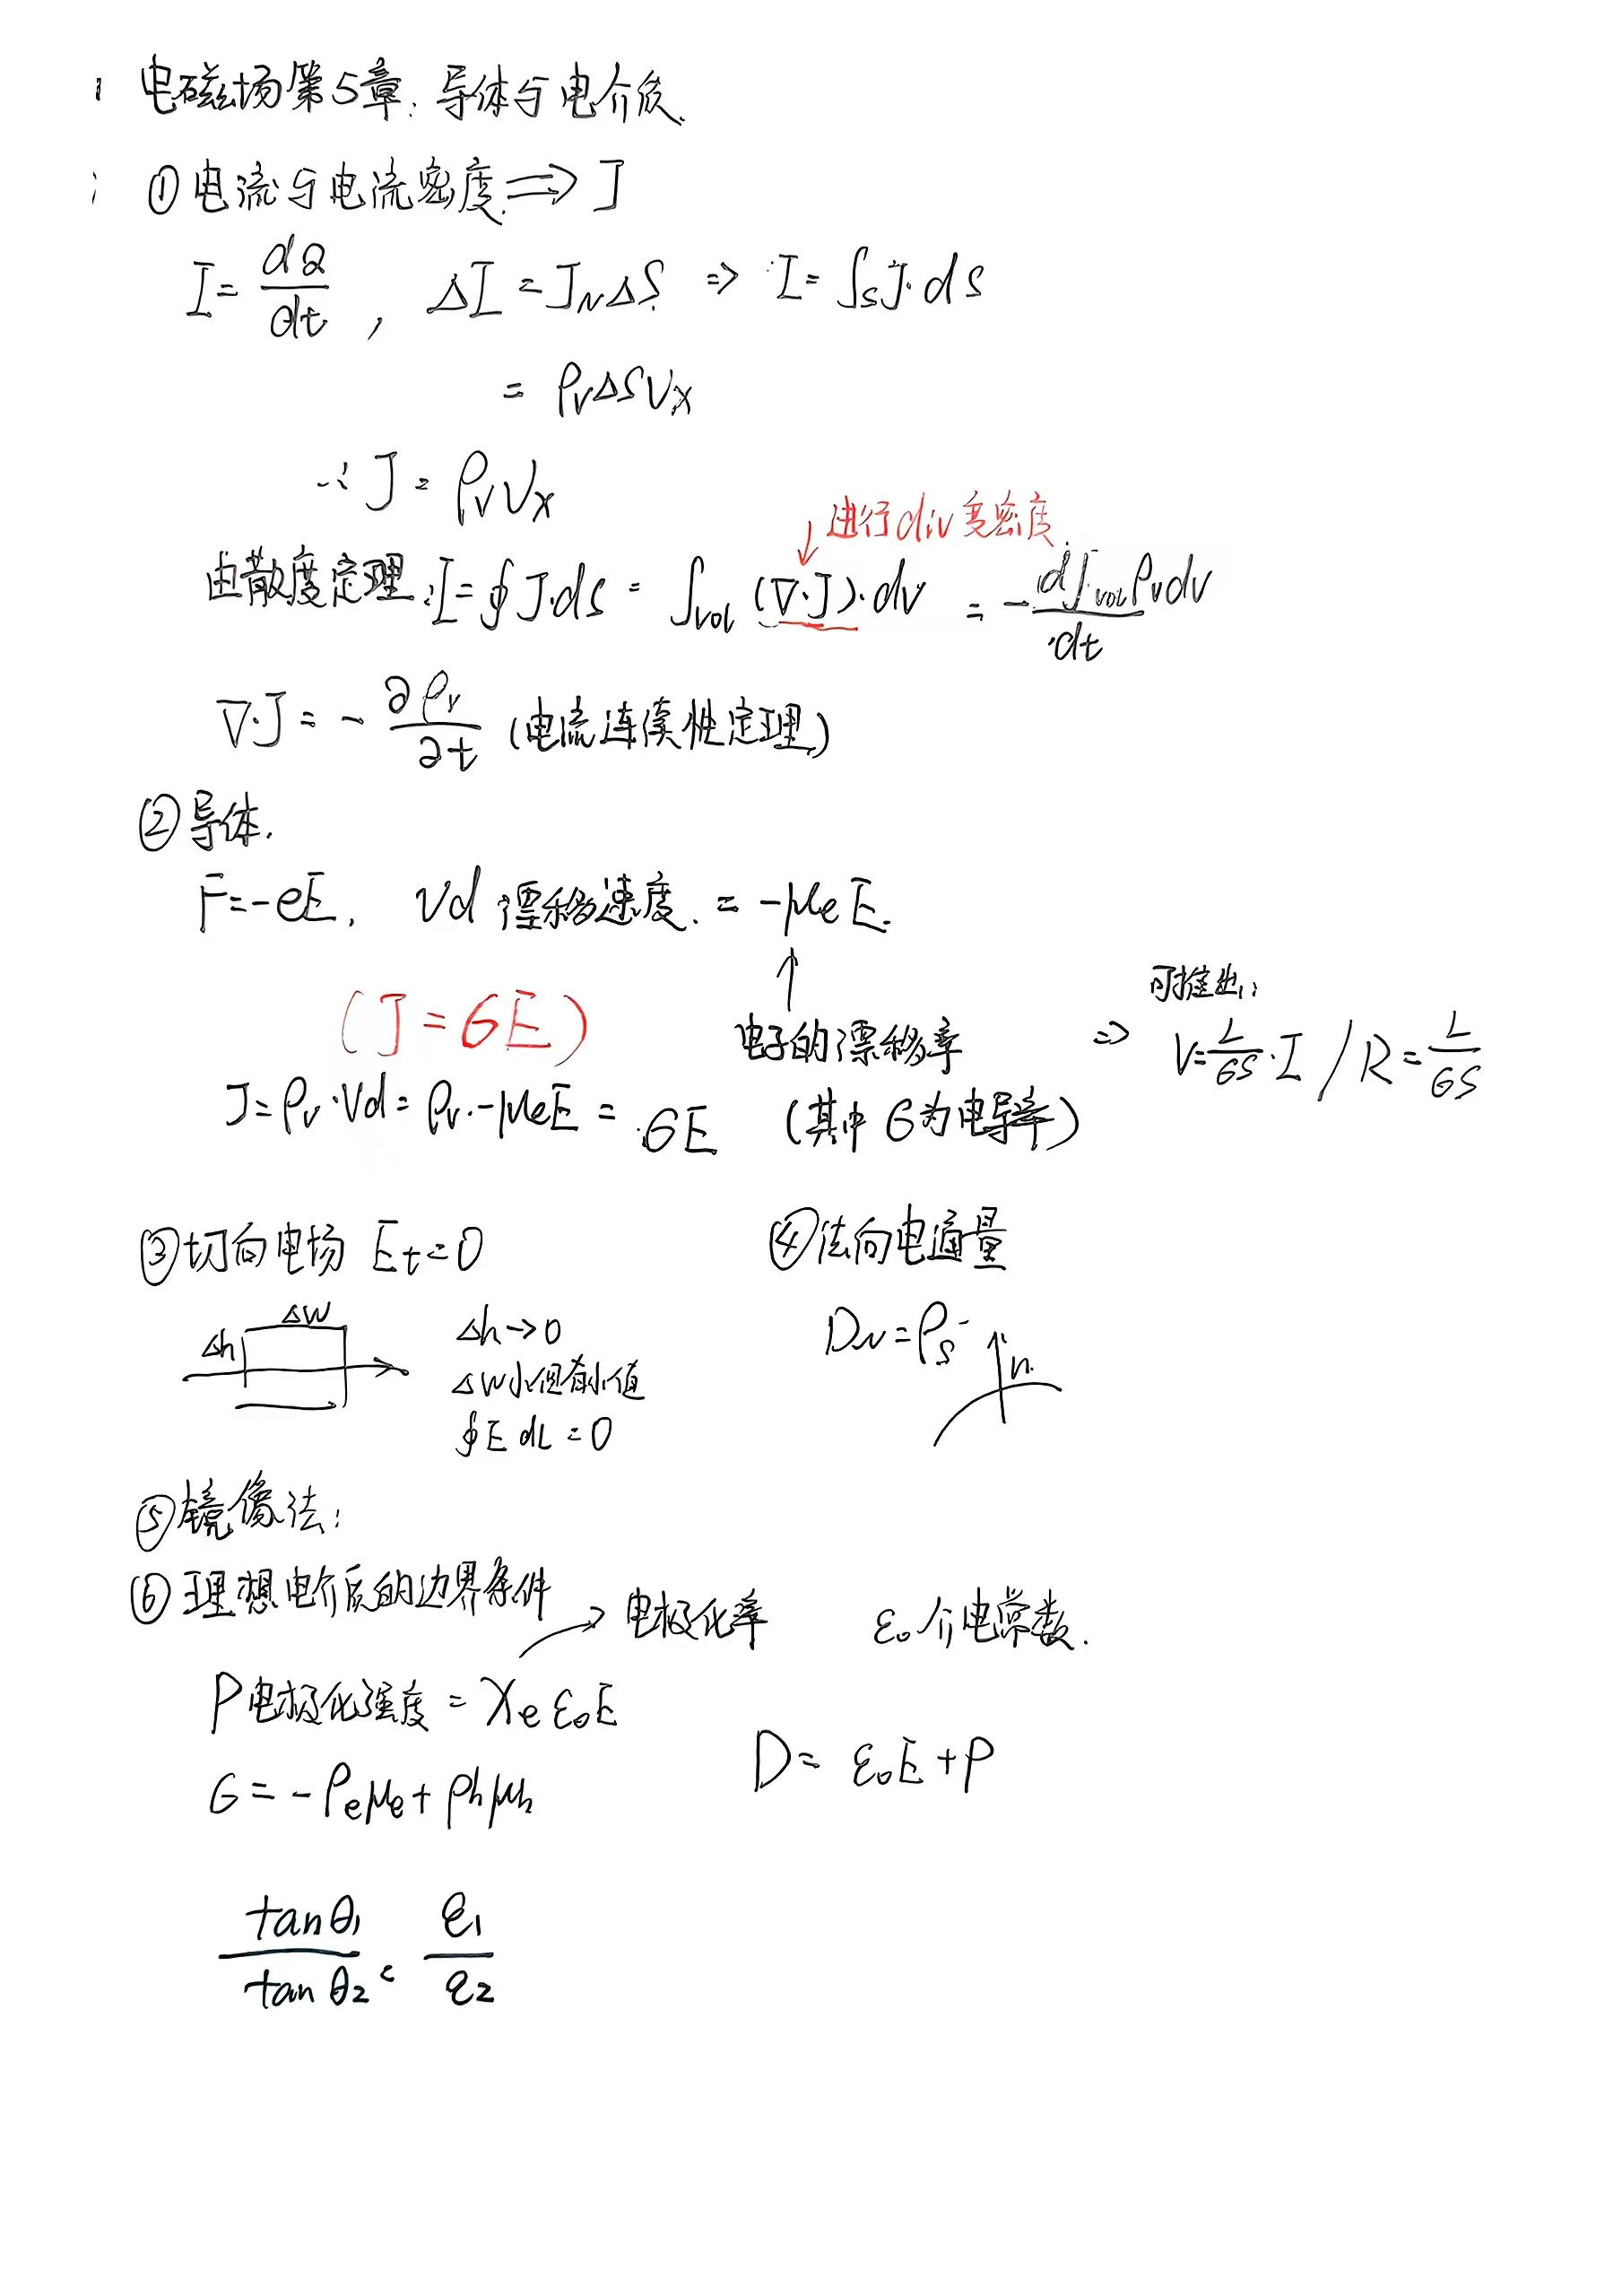 电磁场第5章:导体与电介质
①电流与电流密度 ⇒ J
I = dQ/dt , ΔI = J_N ΔS ⇒ I = ∫_S J·dS
= ρ_v ΔS v_x
∴ J = ρ_v v_x
进行div
密度
由散度定理: I = ∮ J·ds = ∫_vol (∇·J)·dv = - d∫_vol ρ_v dv / dt
∇·J = - ∂ρ_v/∂t (电流连续性定理)
②导体.
F = -eE, Vd 漂移速度 = -μ_e E.
(J = σE)
电子的漂移率
⇒ 可推出: V = L/σS · I / R = L/σS
J = ρ_v·Vd = ρ_v·-μ_e E = σE (其中 σ为电导率)
③切向电场 Et = 0
④法向电通量
Δw
Δh
Δh → 0
Δw小但有小值
∮E dL = 0
D_N = ρ_s
n
⑤镜像法:
⑥理想电介质的边界条件
电极化率 ε₀介电常数.
P电极化强度 = χ_e ε₀E
D = ε₀E + P
σ = -ρ_e μ_e + ρ_h μ_h
tanθ₁/tanθ₂ = ε₁/ε₂